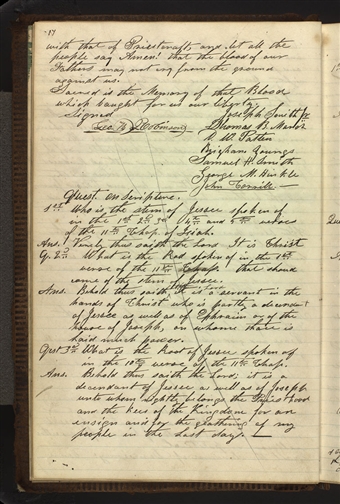 17
with that of Priestcraft, and let all the
people say Amen! that the blood of our
Fathers may not cry from the ground
against us.
Sacred is the Memory of that Blood
which baught for us our liberty.
Signed Joseph Smith Jr.
Geo. W. Robinson Thomas B. Marsh
D. W. Patten
Brigham Youngs
Samuel H. Smith
George M. Hinkle
John Corrill
Quest. on Scripture.
1st. Who is the stem of Jessee spoken of
in the 1st 2d 3d 4th and 5th verses
of the 11th Chap. of Isiah.
Ans. Verely thus saith the Lord It is Christ
Q. 2d What is the Rod spoken of in the 1st
verse of the 11th Chap. that should
come of the stem of Jessee.
Ans. Behold thus saith the Lord it is a servant in the
hands of Christ who is partly a decendant
of Jessee as well as of Ephraim or of the
house of Joseph, on whome thare is
laid much power.
Qest 3d. What is the Root of Jessee spoken of
in the 10th verse of the 11th Chap.
Ans. Behold thus saith the Lord; it is a
decendant of Jessee as well as of Joseph
unto whom rightly belongs the Priesthood
and the kees of the Kingdom for an
ensign and for the geathering of my
people in the Last days.